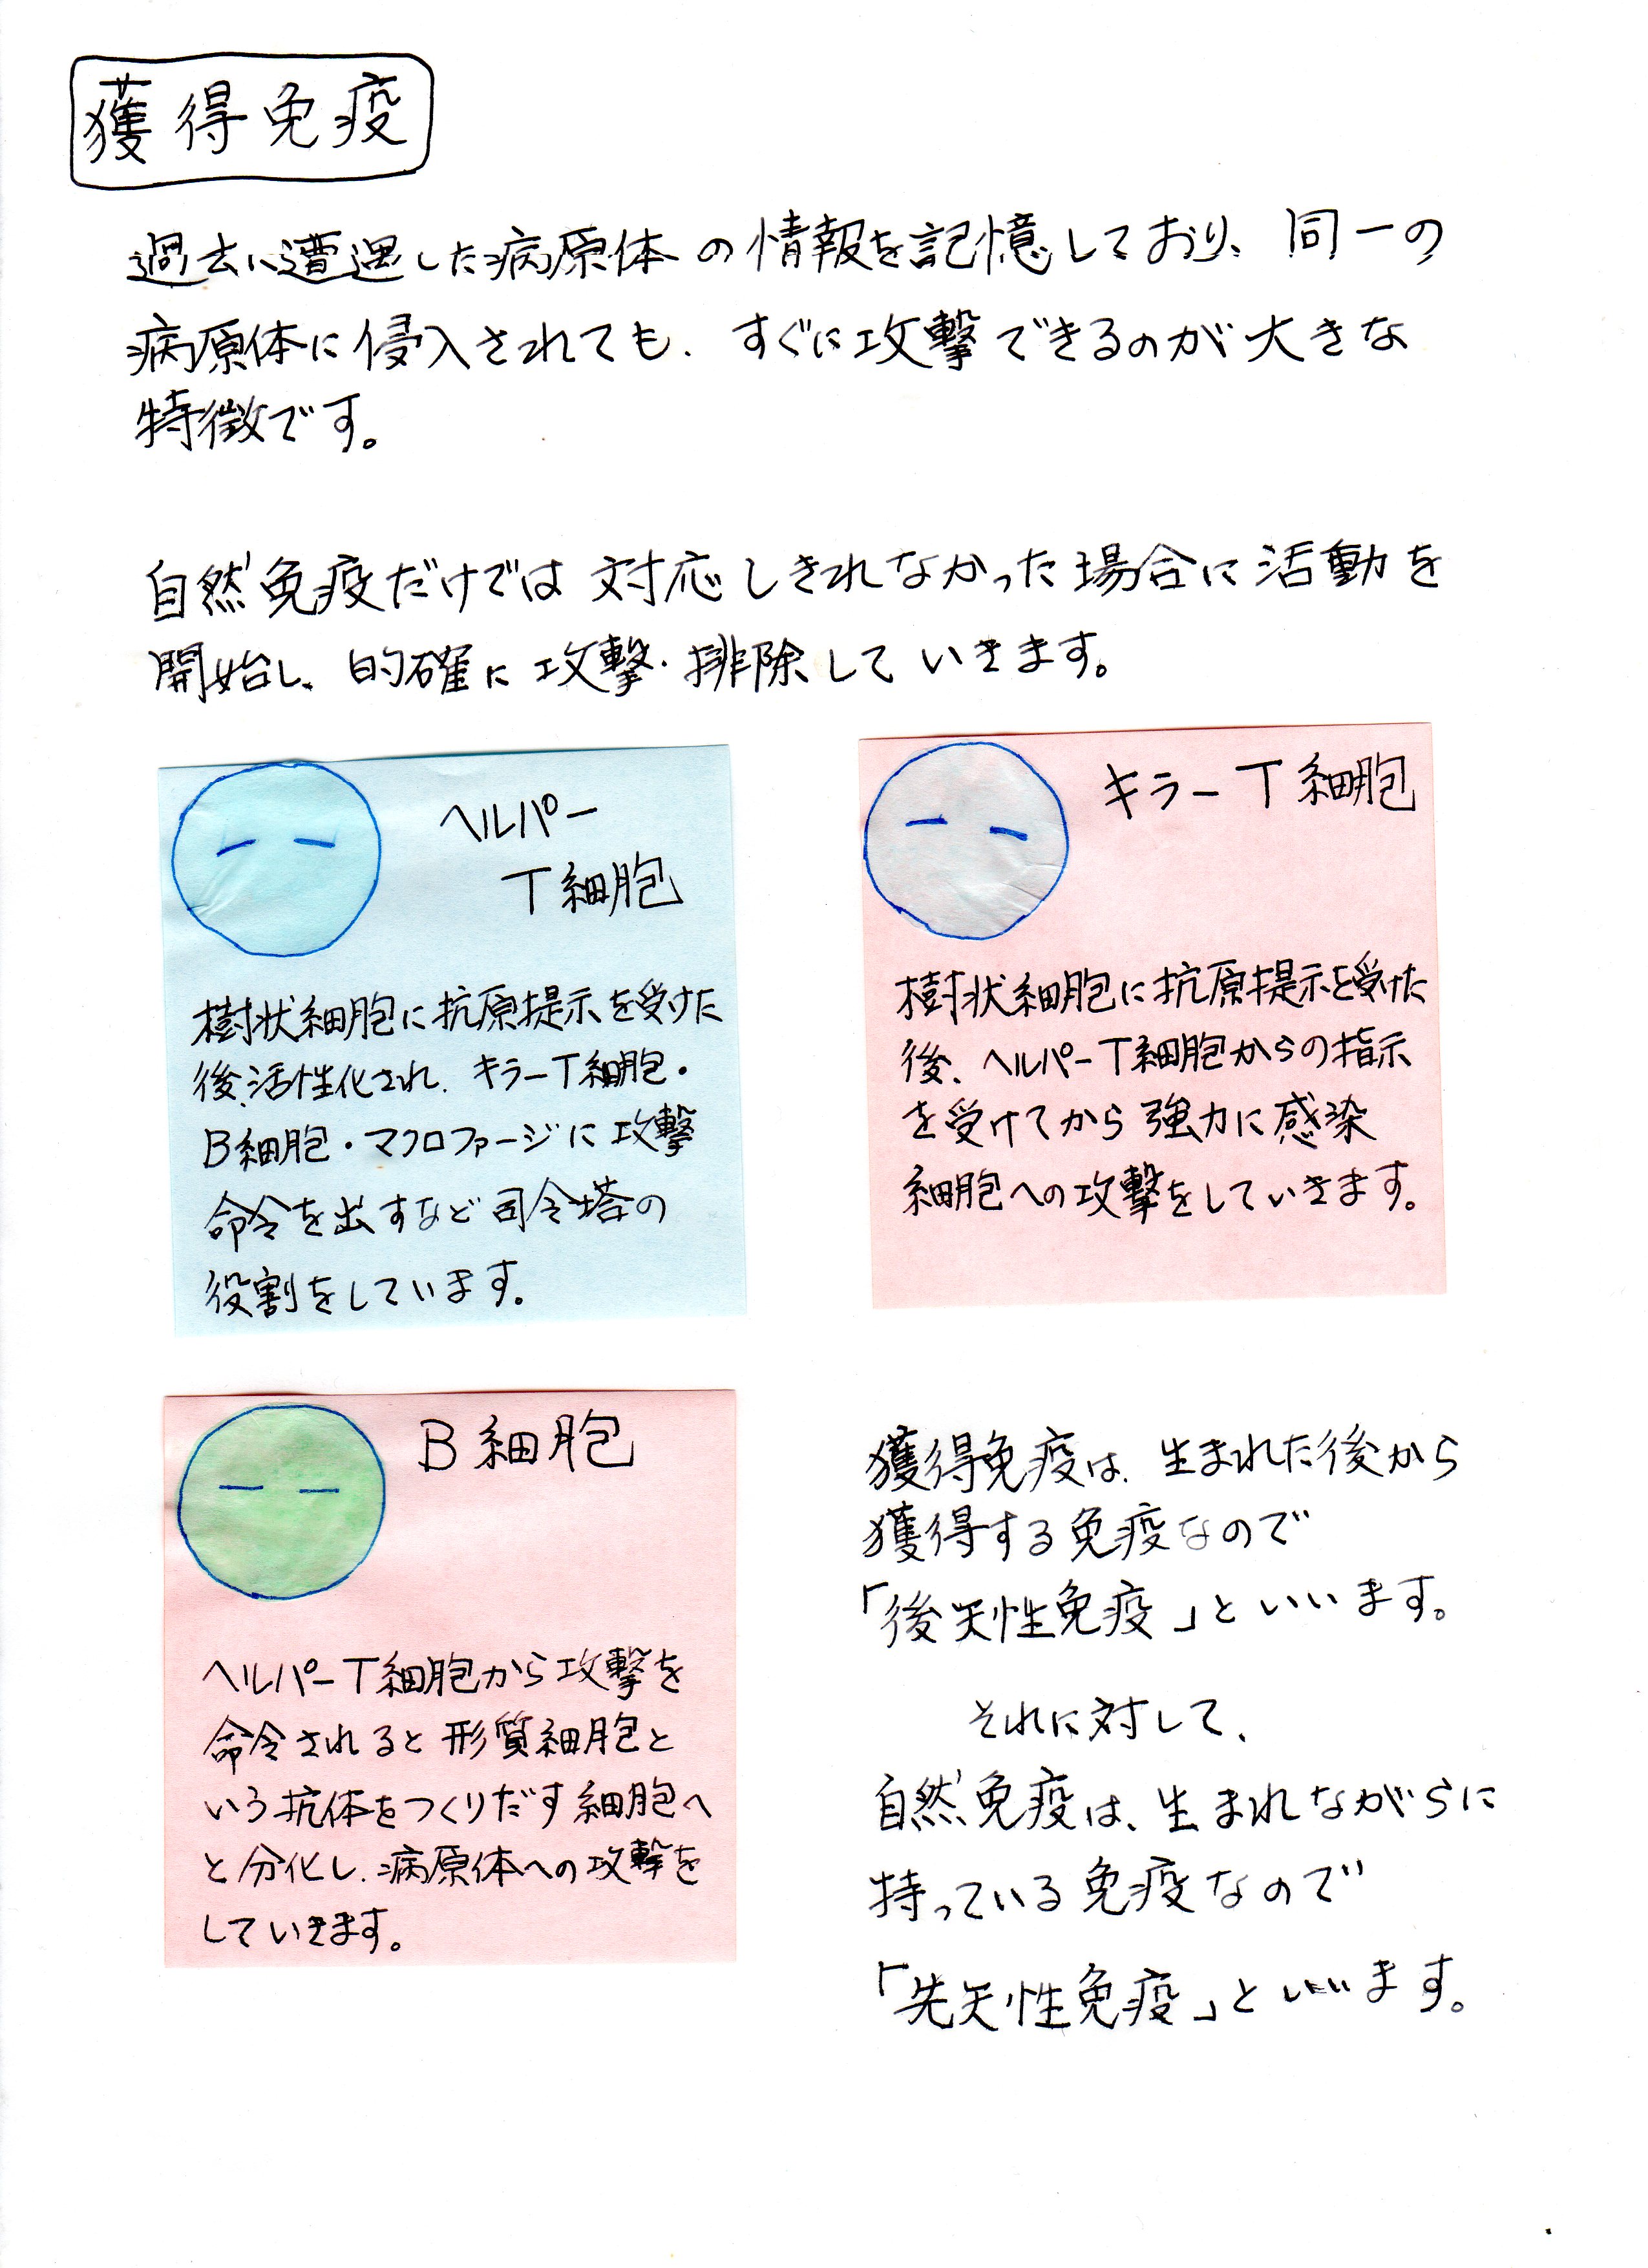 獲得免疫
過去に遭遇した病原体の情報を記憶しており、同一の
病原体に侵入されても、すぐに攻撃できるのが大きな
特徴です。
自然免疫だけでは対応しきれなかった場合に活動を
開始し、的確に攻撃・排除していきます。
ヘルパー
T細胞
樹状細胞に抗原提示を受けた
後、活性化され、キラーT細胞・
B細胞・マクロファージに攻撃
命令を出すなど司令塔の
役割をしています。
キラーT細胞
樹状細胞に抗原提示を受けた
後、ヘルパーT細胞からの指示
を受けてから強力に感染
細胞への攻撃をしていきます。
B細胞
ヘルパーT細胞から攻撃を
命令されると形質細胞と
いう抗体をつくりだす細胞へ
と分化し、病原体への攻撃を
していきます。
獲得免疫は、生まれた後から
獲得する免疫なので
「後天性免疫」といいます。
それに対して、
自然免疫は、生まれながらに
持っている免疫なので
「先天性免疫」といいます。